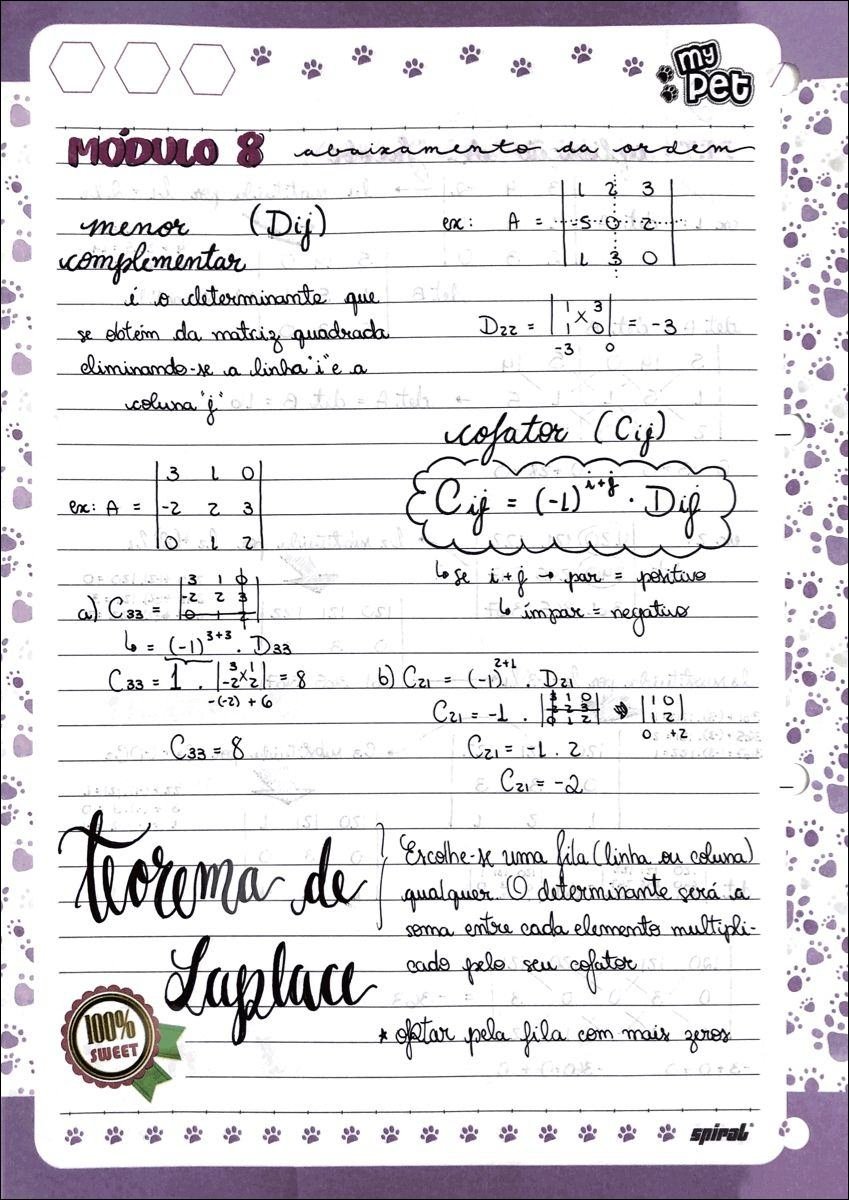 my
pet
MÓDULO 8 abaixamento da ordem
menor (Dij)
complementar
é o determinante que
se obtém da matriz quadrada
eliminando-se a linha "i" e a
coluna "j"
ex: A =
1 2 3
-5 0 2
1 3 0
D22 = | 1 3 | = -3
| 1 0 |
-3 0
cofator (Cij)
Cij = (-1)^i+j · Dij
↳ se i+j → par = positivo
↳ ímpar = negativo
ex: A =
3 1 0
-2 2 3
0 1 2
a) C33 =
3 1 0
-2 2 3
0 1 2
↳ = (-1)^3+3 · D33
C33 = 1 · | 3 1 | = 8
| -2 2 |
-(-2) + 6
C33 = 8
b) C21 = (-1)^2+1 · D21
C21 = -1 ·
3 1 0
-2 2 3
0 1 2
1 0
1 2
0 +2
C21 = -1 · 2
C21 = -2
Teorema de
Laplace
Escolhe-se uma fila (linha ou coluna)
qualquer. O determinante será a
soma entre cada elemento multipli-
cado pelo seu cofator
* optar pela fila com mais zeros
100%
SWEET
spiral